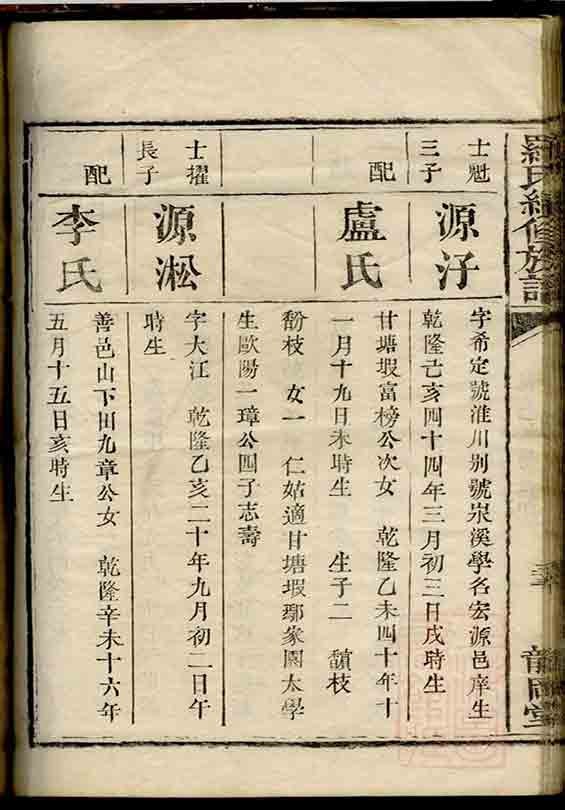 羅氏續修族譜
士魁
三子
源汓
字希定號淮川別號泉溪學名宏源邑庠生
乾隆己亥四十四年三月初三日戌時生
配
盧氏
甘塘塅富榜公次女　乾隆乙未四十年十
一月十九日未時生　生子二　馩枝
馚枝　女一　仁姑適甘塘塅鄢家園太學
生歐陽一璋公四子志壽
士擢
長子
源淞
字大江　乾隆乙亥二十年九月初二日午
時生
配
李氏
善邑山下田九章公女　乾隆辛未十六年
五月十五日亥時生